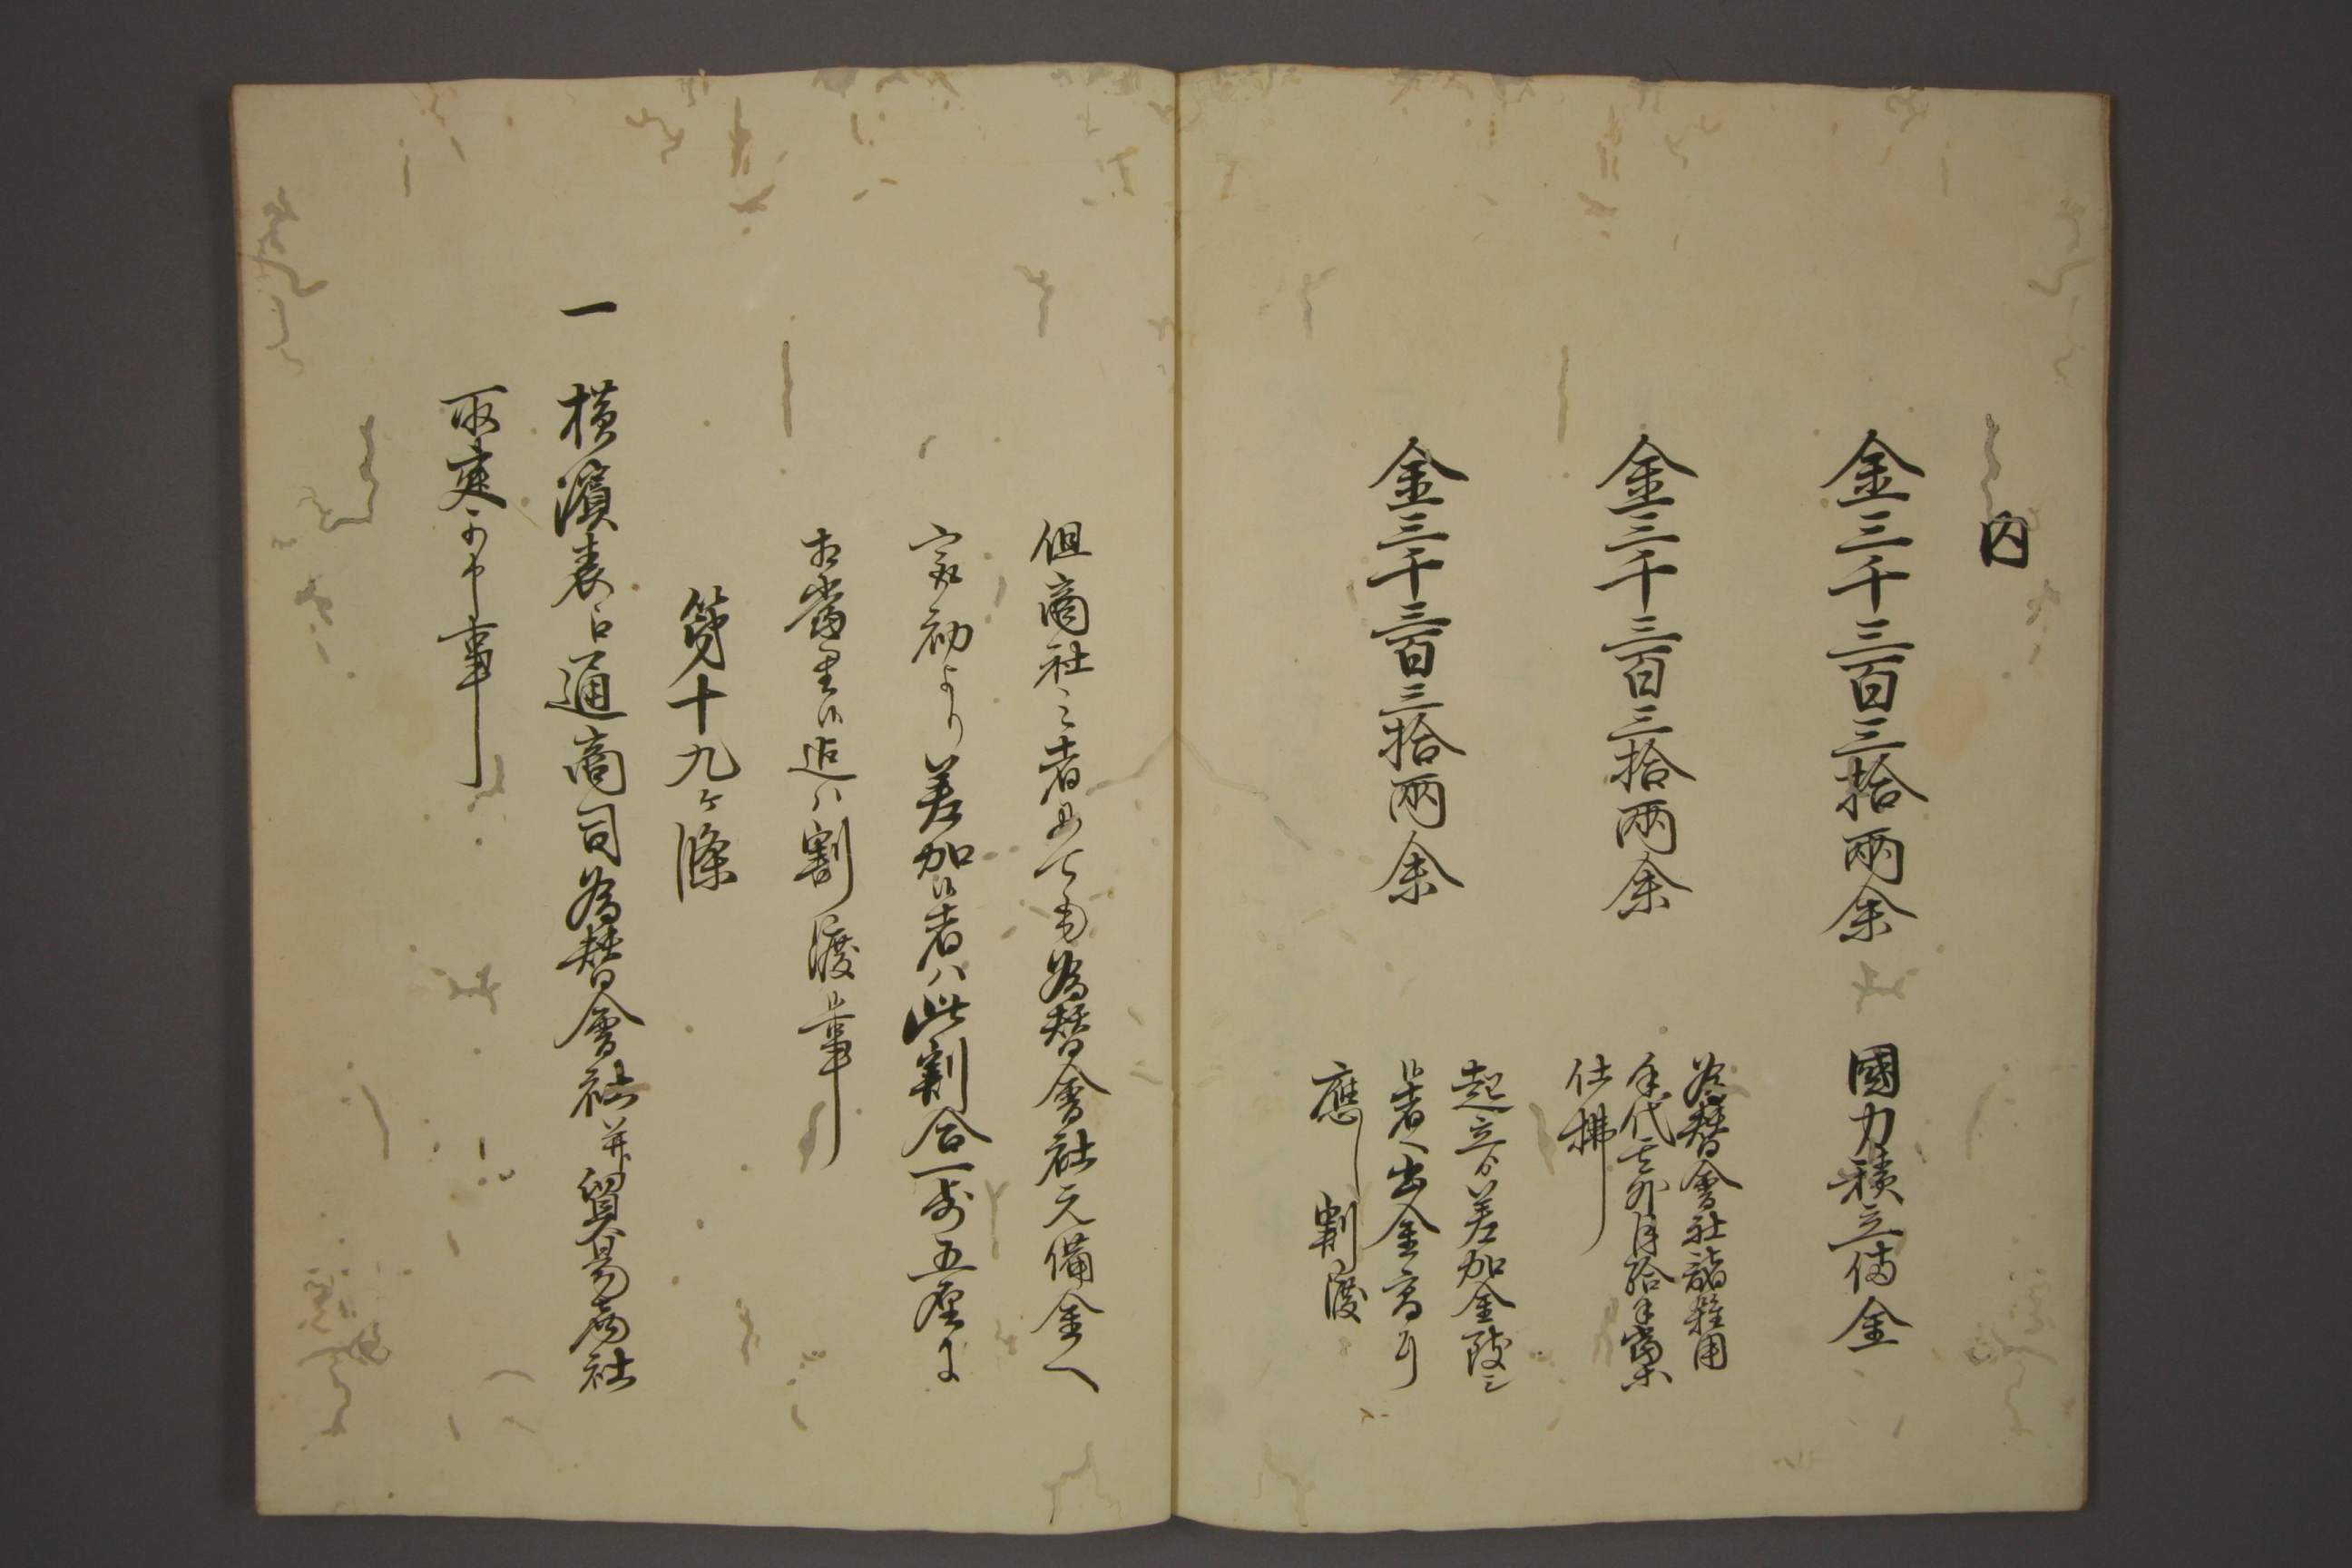 内
金三千三百三拾両余
國力積立備金
金三千三百三拾両余
為替會社諸雑用
手代其外月給手當等
仕拂
金三千三百三拾両余
起立ゟ差加金致シ
候者へ出金高ニ
應し割渡
但商社之者ニても為替會社元備金へ
最初より差加候者ハ此割合一歩五厘ニ
相當里候迠ハ割渡候事
第十九ヶ條
一横濱表江通商司為替會社并貿易商社
取建可申事